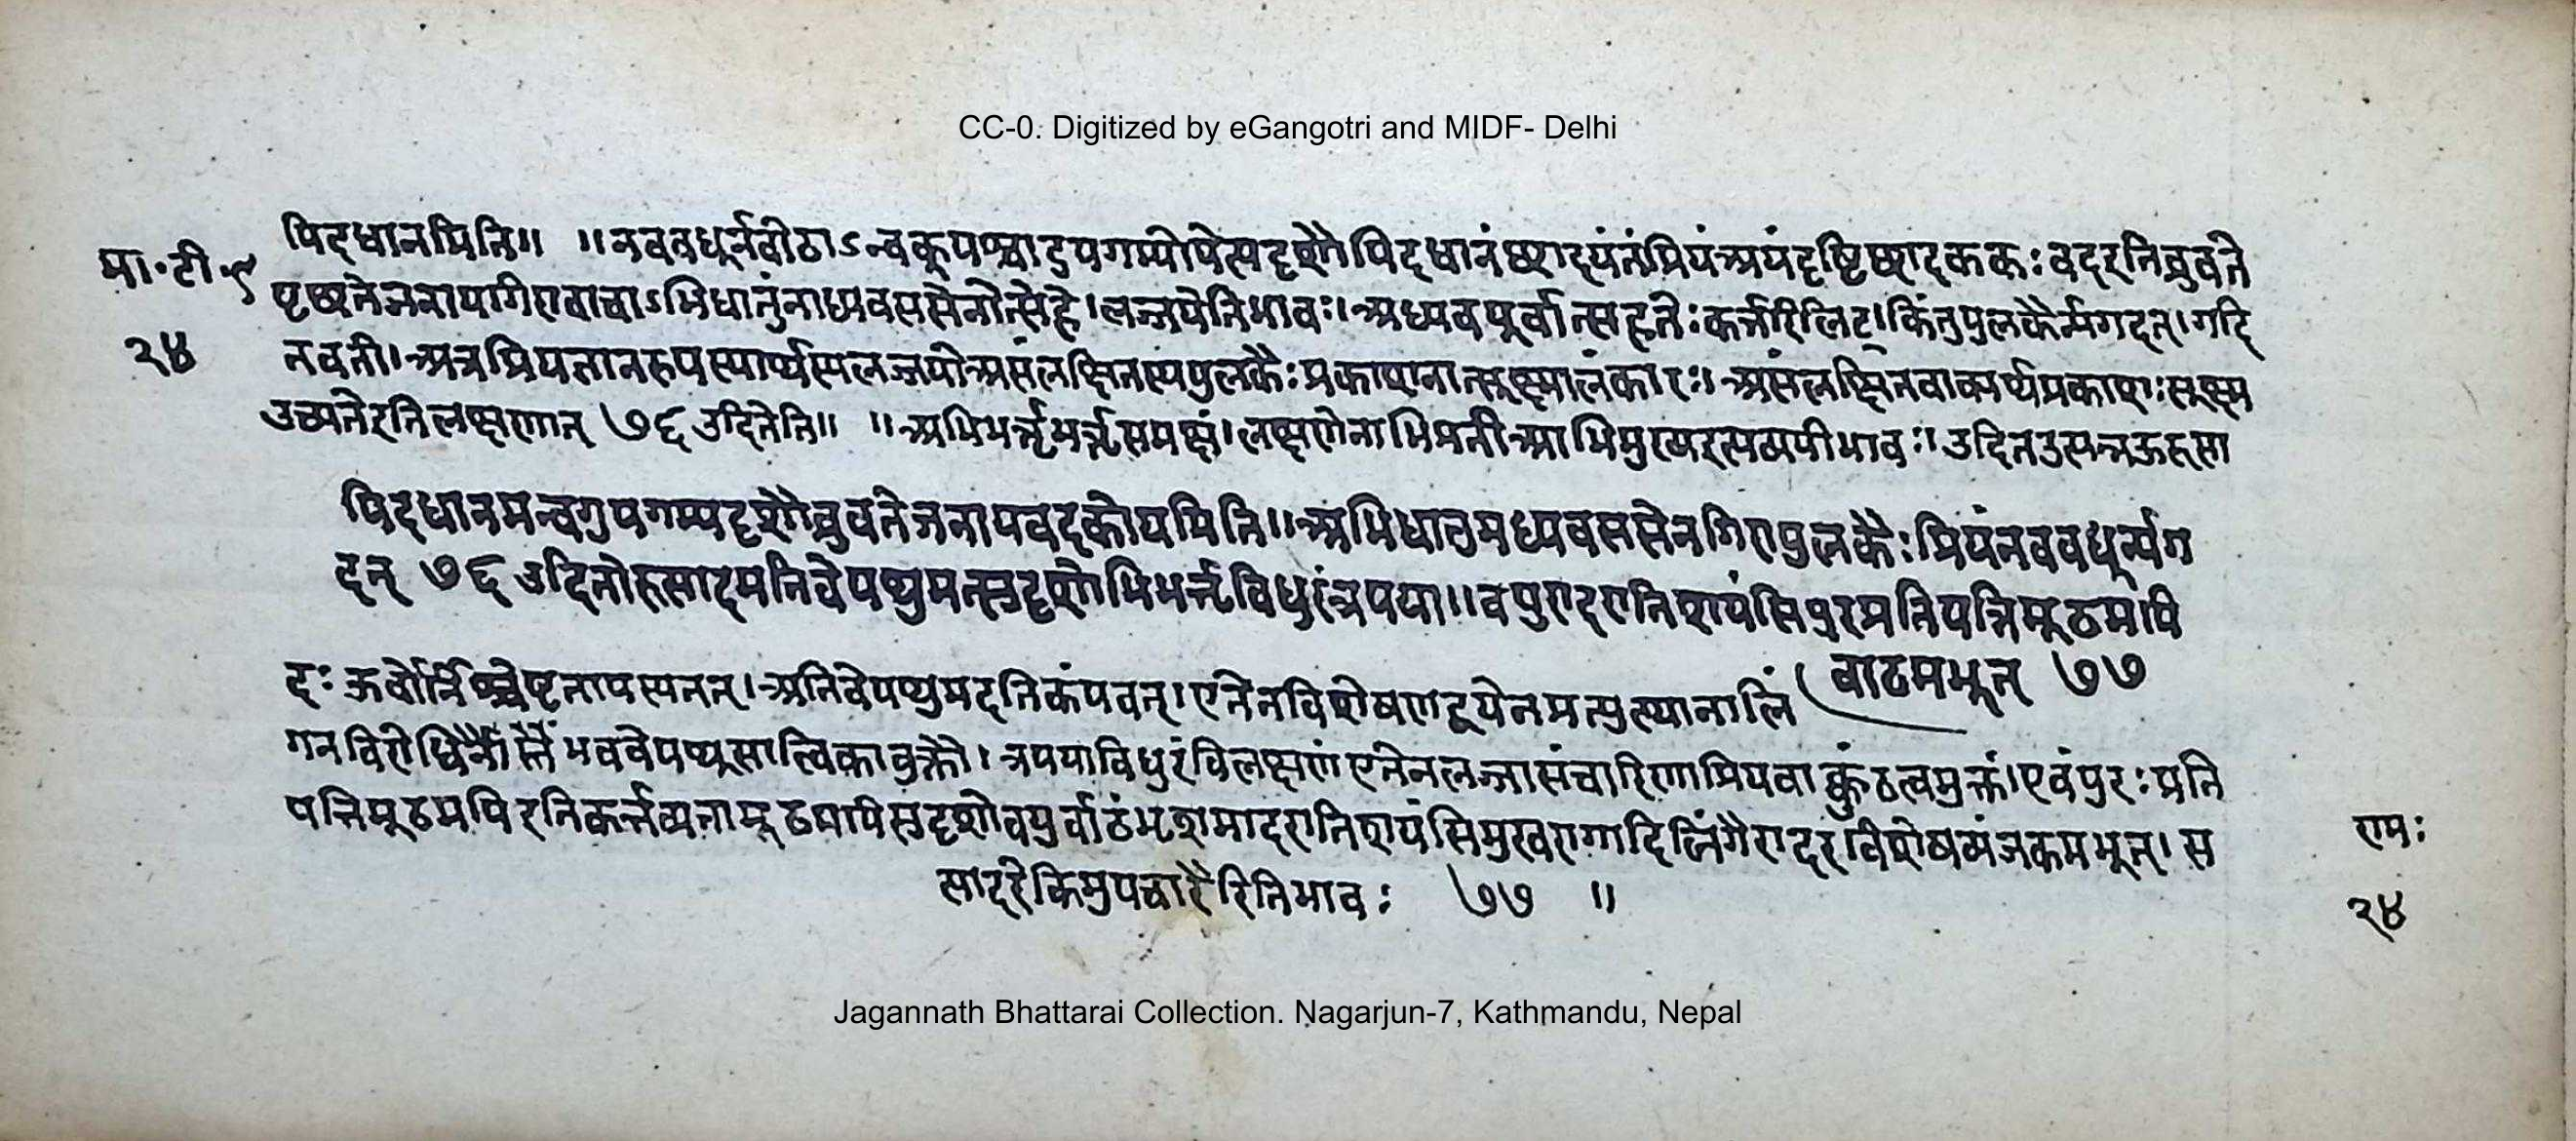 CC-0. Digitized by eGangotri and MIDF- Delhi
मा॰टी॰९
२४
पिदधानमिति॥ ॥नववधूर्नवोढाऽन्वक्पश्चादुपगम्योपेत्यदृशौपिदधानंछादयंतंप्रियंअयंदृष्टिछादकःकःवदइतिब्रुवते
पृछतेजनायागिरावाचाऽभिधातुंनाध्यवससेनोत्सेहे।लज्जयेतिभावः।अध्यवपूर्वात्स्यतेःकर्त्तरिलिट्।किंतुपुलकैर्न्यगदत्।गदि
तवती।अत्रप्रियज्ञानरूपस्यार्थस्यलज्जयाअसंलक्षितस्यपुलकैःप्रकाशनात्सूक्ष्मालंकारः।असंलक्षितवाक्यार्थप्रकाशःसूक्ष्म
उच्यतेइतिलक्षणात् ७६ उदितेति॥ ॥अभिभर्त्तृभर्त्तृसमक्षं।लक्षणेनाभिप्रतीआभिमुख्यइत्यव्ययीभावः।उदितउत्पन्नऊरुसा
पिदधानमन्वगुपगम्यदृशौब्रुवतेजनायवदकोयमिति॥अभिधातुमध्यवससेनगिरापुलकैःप्रियंनववधूर्न्यग
दत् ७६ उदितोरुसादमतिवेपथुमत्सुदृशोभिभर्त्तृविधुरंत्रपया॥वपुरादरातिशयशंसिपुरःप्रतिपत्तिमूढमपि
वाढमभूत् ७७
दः ऊर्वोर्निश्चेष्टतायस्यतत्।अतिवेपथुमदतिकंपवत्।एतेनविशेषणद्वयेनमत्युत्थानालिं
गनविरोधिनौ स्तंभवेपथूसात्विकावुक्तौ। त्रपयाविधुरंविलक्षणं एतेनलज्जासंचारिणाप्रियवाक्कुंठत्वमुक्तं।एवंपुरःप्रति
पत्तिमूढमपिइतिकर्त्तव्यतामूढमपिसुदृशोवपुर्वाढंभृशमादरातिशयशंसिमुखरागादिलिंगैरादरविशेषव्यंजकमभूत्। स
सादरेकिमुपचारैरितिभावः ७७ ॥
रामः
२४
Jagannath Bhattarai Collection. Nagarjun-7, Kathmandu, Nepal